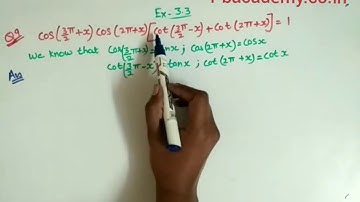 Ex-3.3
Q9 cos(3/2π+x) cos(2π+x)[cot(3/2π-x)+cot(2π+x)]=1
We know that cos(3/2π+x)= sinx ; cos(2π+x)=cosx
Ans cot(3/2π-x)=tanx ; cot(2π+x)=cotx